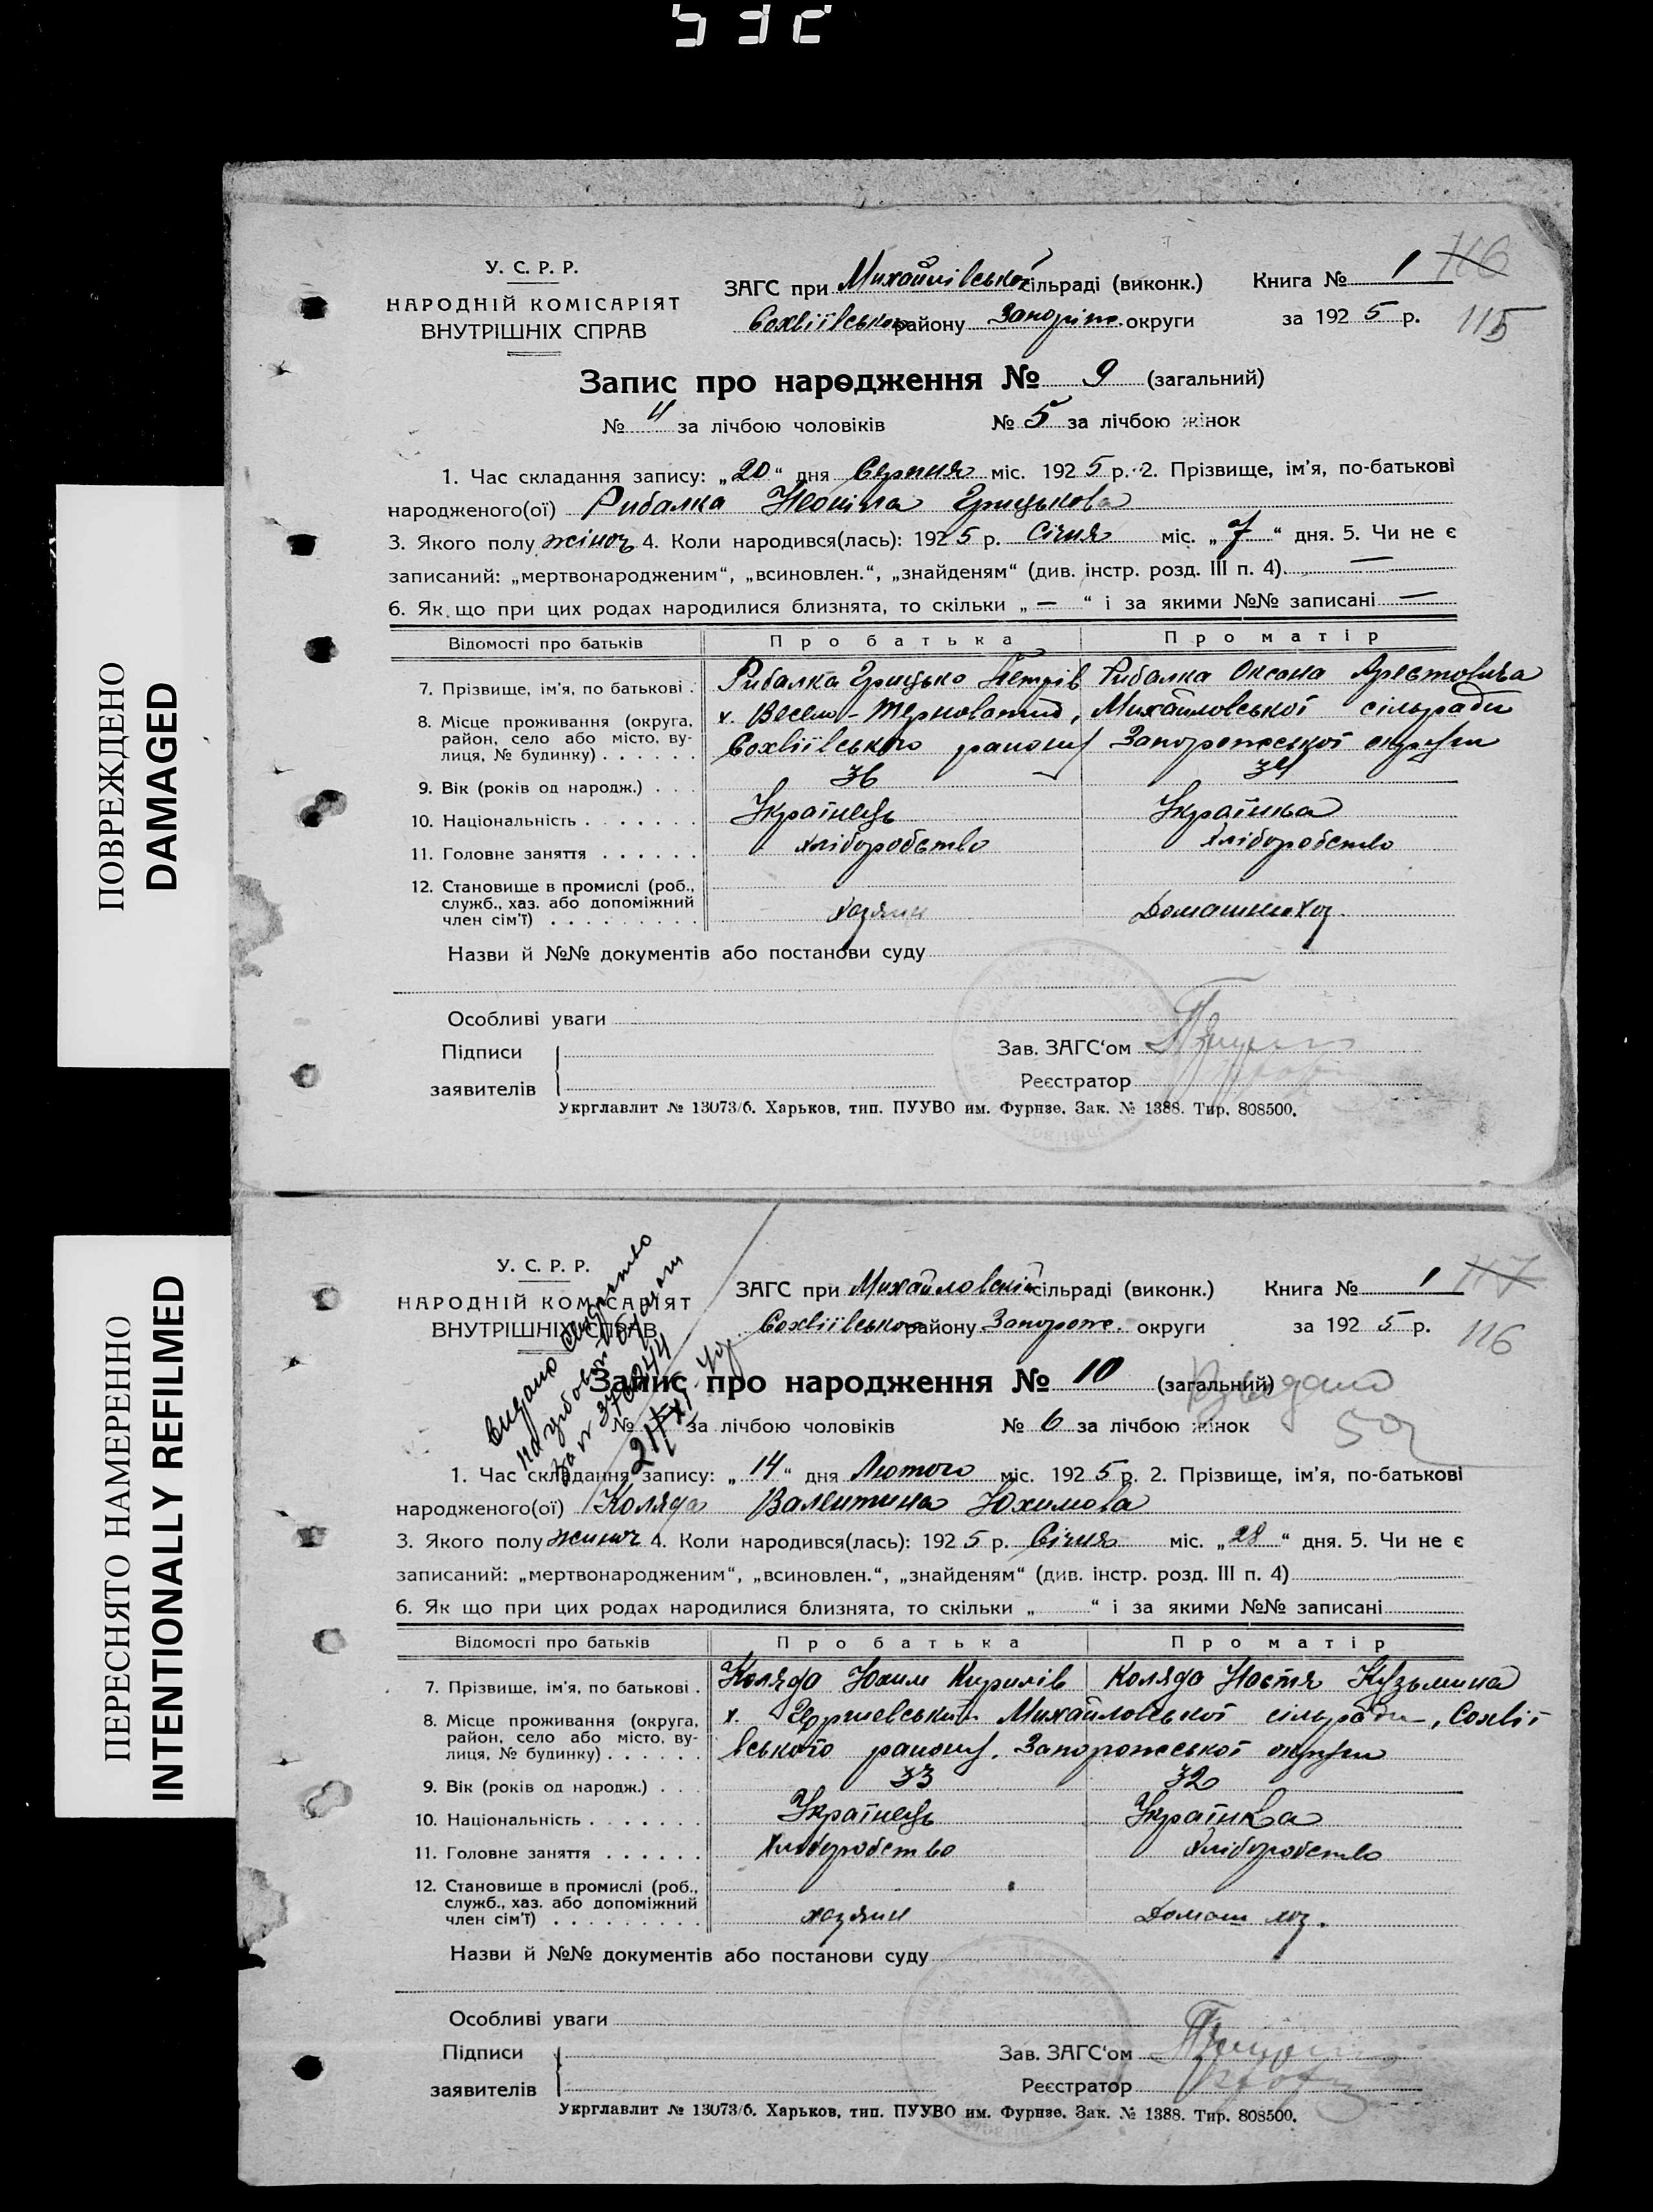 532
ПОВРЕЖДЕНО
DAMAGED
ПЕРЕСНЯТО НАМЕРЕННО
INTENTIONALLY REFILMED
У. С. Р. Р.
НАРОДНІЙ КОМІСАРІЯТ
ВНУТРІШНІХ СПРАВ
ЗАГС при Михайлівської сільраді (виконк.)
Сохвіївськом району Запоріж. округи
Книга № 1 116
за 1925 р. 115
Запис про народження № 9 (загальний)
№ 4 за лічбою чоловіків № 5 за лічбою жінок
1. Час складання запису: „20“ дня Серпня міс. 1925 р. 2. Прізвище, ім'я, по-батькові
народженого(ої) Рибалка Неоніла Грицькова
3. Якого полу жіноч 4. Коли народився(лась): 1925 р. Січня міс. „7“ дня. 5. Чи не є
записаний: „мертвонародженим“, „всиновлен.“, „знайденям“ (див. інстр. розд. III п. 4). —
6. Як що при цих родах народилися близнята, то скільки „—“ і за якими №№ записані —
Відомості про батьків Про батька Про матір
7. Прізвище, ім'я, по батькові . Рибалка Грицько Петрів Рибалка Оксана
8. Місце проживання (округа, район, село або місто, вулиця, № будинку) . . . . . . х. Весело-Терноватий, Михайловської сільради
Сохвіївського району Запорожської округи
9. Вік (років од народж.) . . . 36 34
10. Національність . . . . . . . Українець Українка
11. Головне заняття . . . . . . Хліборобство Хліборобство
12. Становище в промислі (роб., служб., хаз. або допоміжний член сім'ї) . . . . . . . . . хазяин Домашне хоз.
Назви й №№ документів або постанови суду
Особливі уваги
Підписи
заявителів
Зав. ЗАГС'ом
Реєстратор
Укрглавлит № 13073/б. Харьков, тип. ПУУВО им. Фурнзе. Зак. № 1388. Тир. 808500.
У. С. Р. Р.
НАРОДНІЙ КОМІСАРІЯТ
ВНУТРІШНІХ СПРАВ
Видано
за № 376244
ЗАГС при Михайловскій сільраді (виконк.)
Сохвіївськом району Запорож. округи
Книга № 1 117
за 1925 р. 116
Запис про народження № 10 (загальний)
№ за лічбою чоловіків № 6 за лічбою жінок
1. Час складання запису: „14“ дня Лютого міс. 1925 р. 2. Прізвище, ім'я, по-батькові
народженого(ої) Коляда Валентина Юхимова
3. Якого полу жиноч 4. Коли народився(лась): 1925 р. Січня міс. „28“ дня. 5. Чи не є
записаний: „мертвонародженим“, „всиновлен.“, „знайденям“ (див. інстр. розд. III п. 4)
6. Як що при цих родах народилися близнята, то скільки „ “ і за якими №№ записані
Відомості про батьків Про батька Про матір
7. Прізвище, ім'я, по батькові . Коляда Юхим Кирилів Коляда Настя Кузьмина
8. Місце проживання (округа, район, село або місто, вулиця, № будинку) . . . . . . х. Михайловської сільради, Сохвії
вського району. Запорожської округи
9. Вік (років од народж.) . . . 33 32
10. Національність . . . . . . . Українець Українка
11. Головне заняття . . . . . . Хліборобство Хліборобство
12. Становище в промислі (роб., служб., хаз. або допоміжний член сім'ї) . . . . . . . . . хазяин Домаш хоз.
Назви й №№ документів або постанови суду
Особливі уваги
Підписи
заявителів
Зав. ЗАГС'ом
Реєстратор
Укрглавлит № 13073/б. Харьков, тип. ПУУВО им. Фурнзе. Зак. № 1388. Тир. 808500.